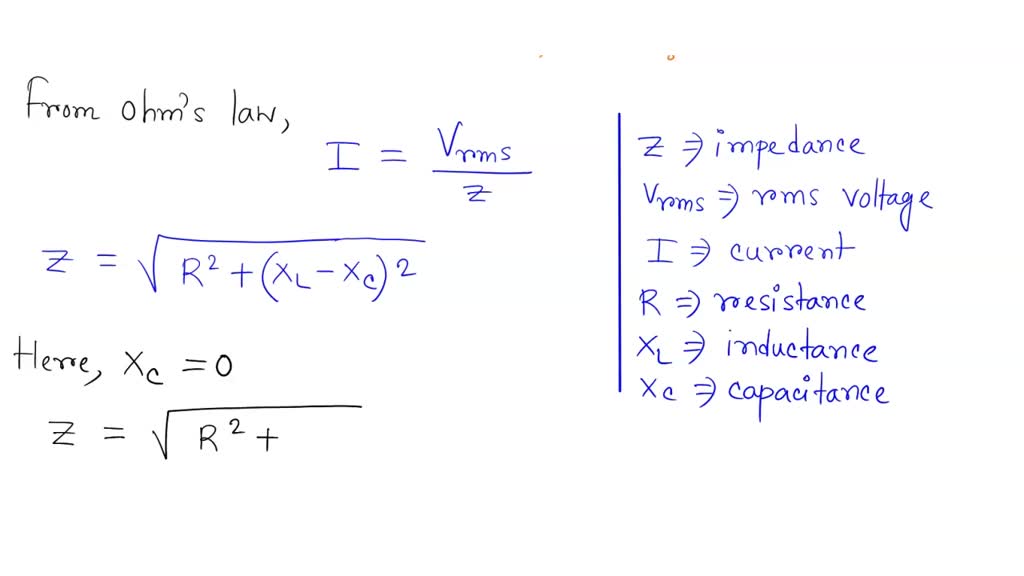 From ohm's law,
I = Vrms / Z
Z = √(R² + (XL - XC)²)
Here, XC = 0
Z = √(R² +
Z ⇒ impedance
Vrms ⇒ rms voltage
I ⇒ current
R ⇒ resistance
XL ⇒ inductance
XC ⇒ capacitance